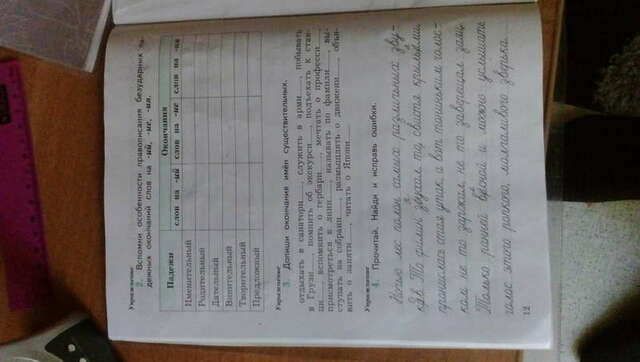 Упражнение
2. Вспомни особенности правописания безударных па-
дежных окончаний слов на -ий, -ие, -ия.
Падежи
Окончания
слов на -ий слов на -ие слов на -ия
Именительный
Родительный
Дательный
Винительный
Творительный
Предложный
Упражнение
3. Допиши окончания имён существительных.
отдыхать в санатори___, служить в арми___, побывать
в Грузи___, помнить об экскурси___, подъехать к стан-
ци___, вспомнить о гербари___, мечтать о професси___,
присмотреться к лини___, называть по фамили___, вы-
ступать на собрани___, размышлять о движени___, объя-
вить о заняти___, читать о Япони___.
Упражнение
4. Прочитай. Найди и исправь ошибки.
Ночью лес полон самых различных зву-
ков. То филин заухал то, свистя крыльями
пронислась стая утак, а вот тониньким голос-
ком не то заржал не то заверещал заяц.
Только ранней весной и можно услышать
голос этого ропкого, молчаливого зверька.
12